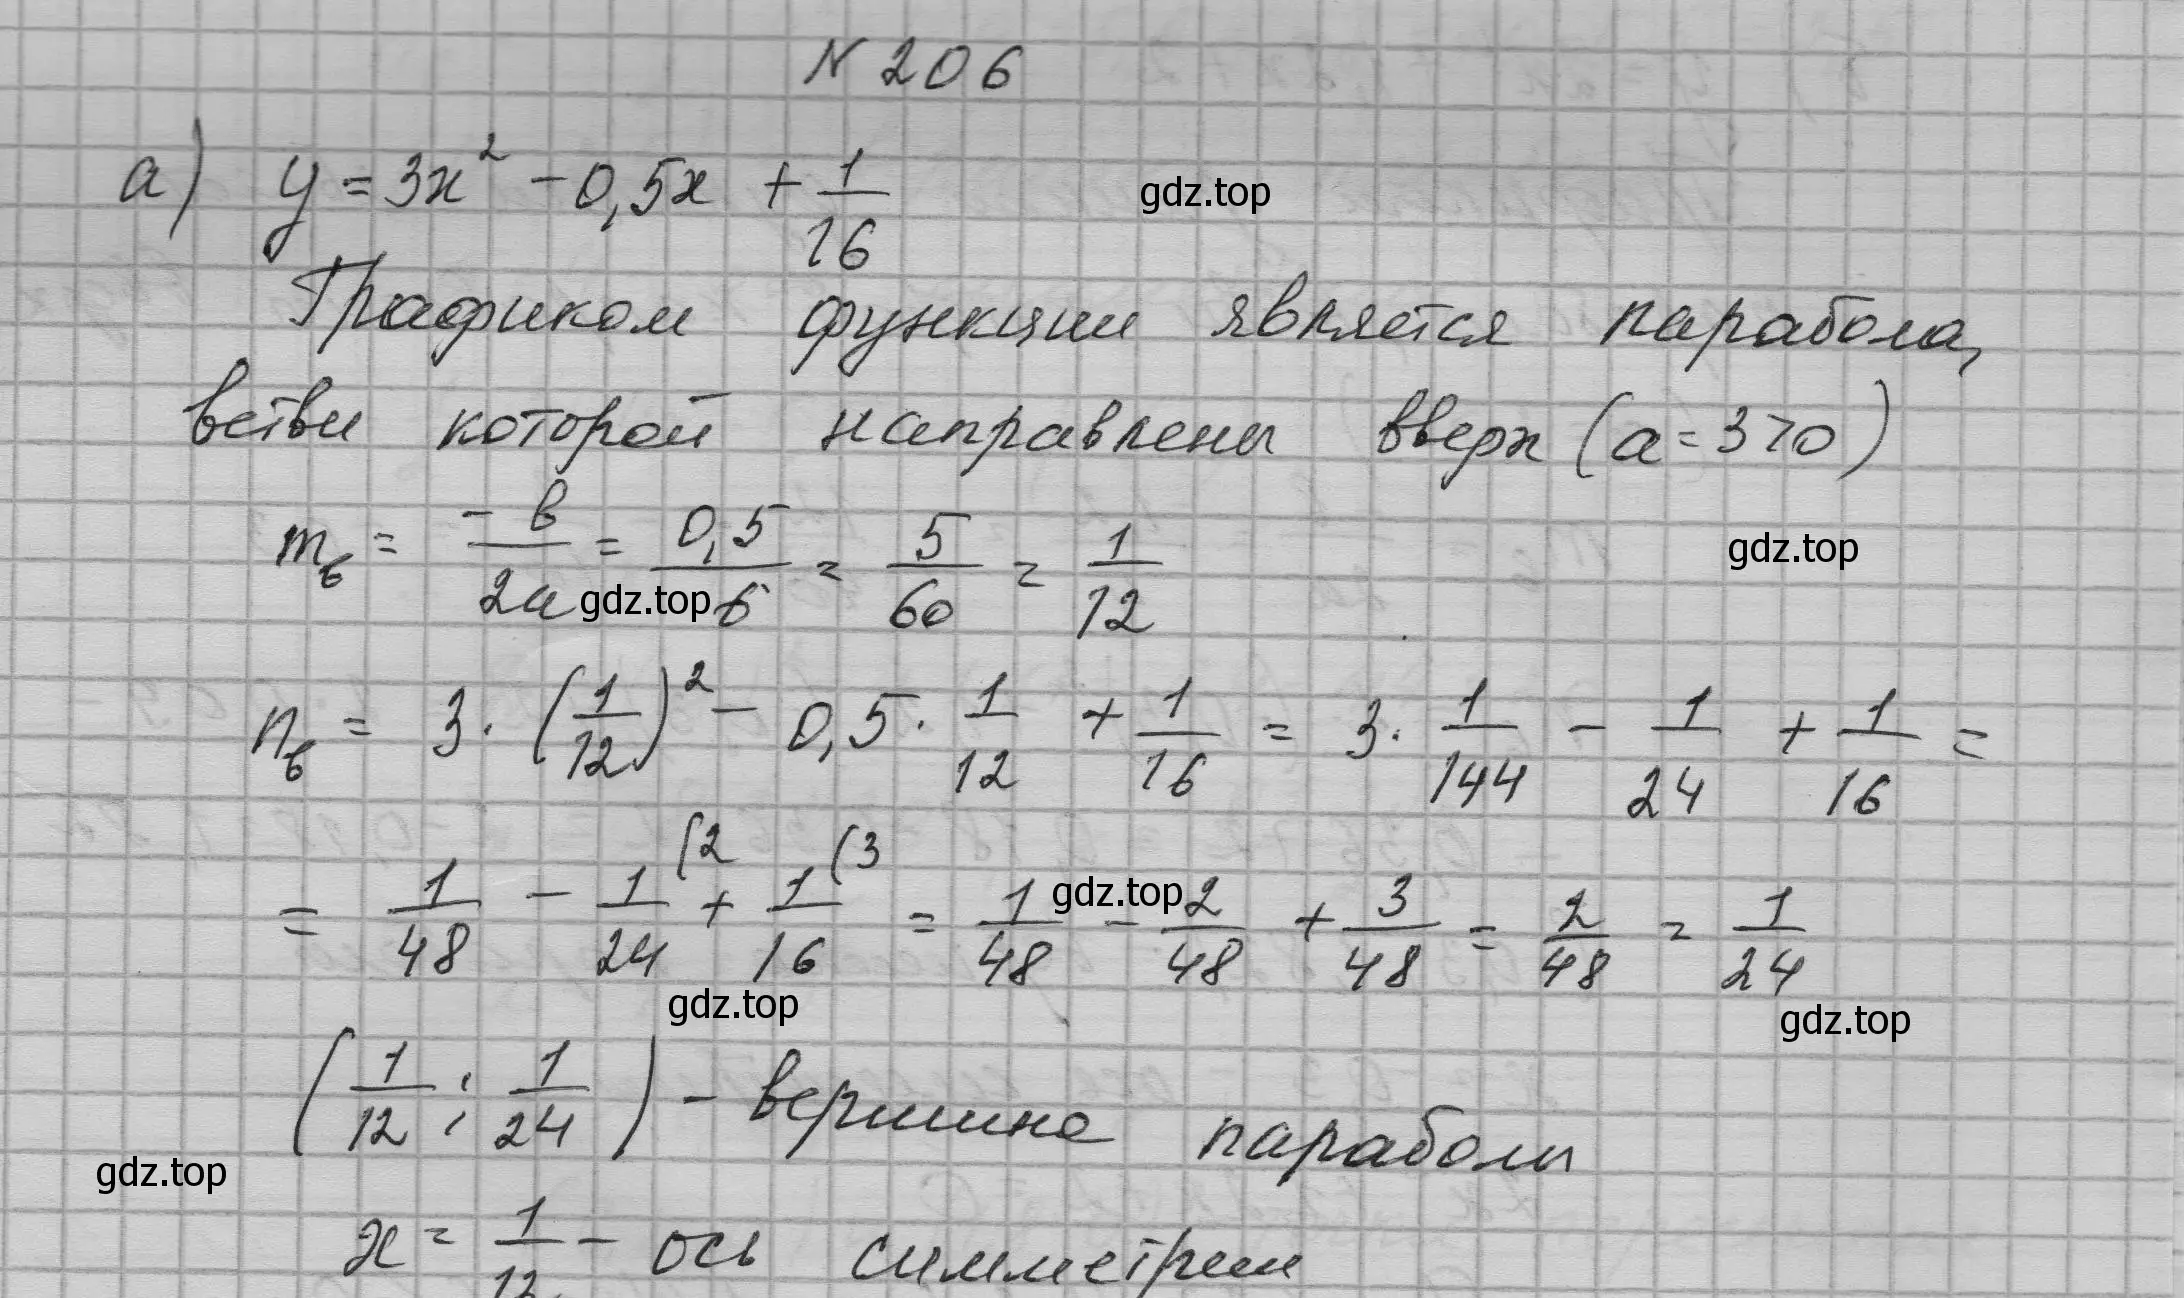 N 206
а) y = 3x² - 0,5x + 1/16
gdz.top
Графиком функции является парабола,
ветви которой направлены вверх (a = 3 > 0)
m_в = -в/2a = 0,5/6 = 5/60 = 1/12
gdz.top
gdz.top
n_в = 3 · (1/12)² - 0,5 · 1/12 + 1/16 = 3 · 1/144 - 1/24 + 1/16 =
= 1/48 - 1/24 (2 + 1/16 (3 = 1/48 - 2/48 + 3/48 = 2/48 = 1/24
gdz.top
gdz.top
gdz.top
(1/12 ; 1/24) - вершина параболы
gdz.top
x = 1/12 - ось симметрии